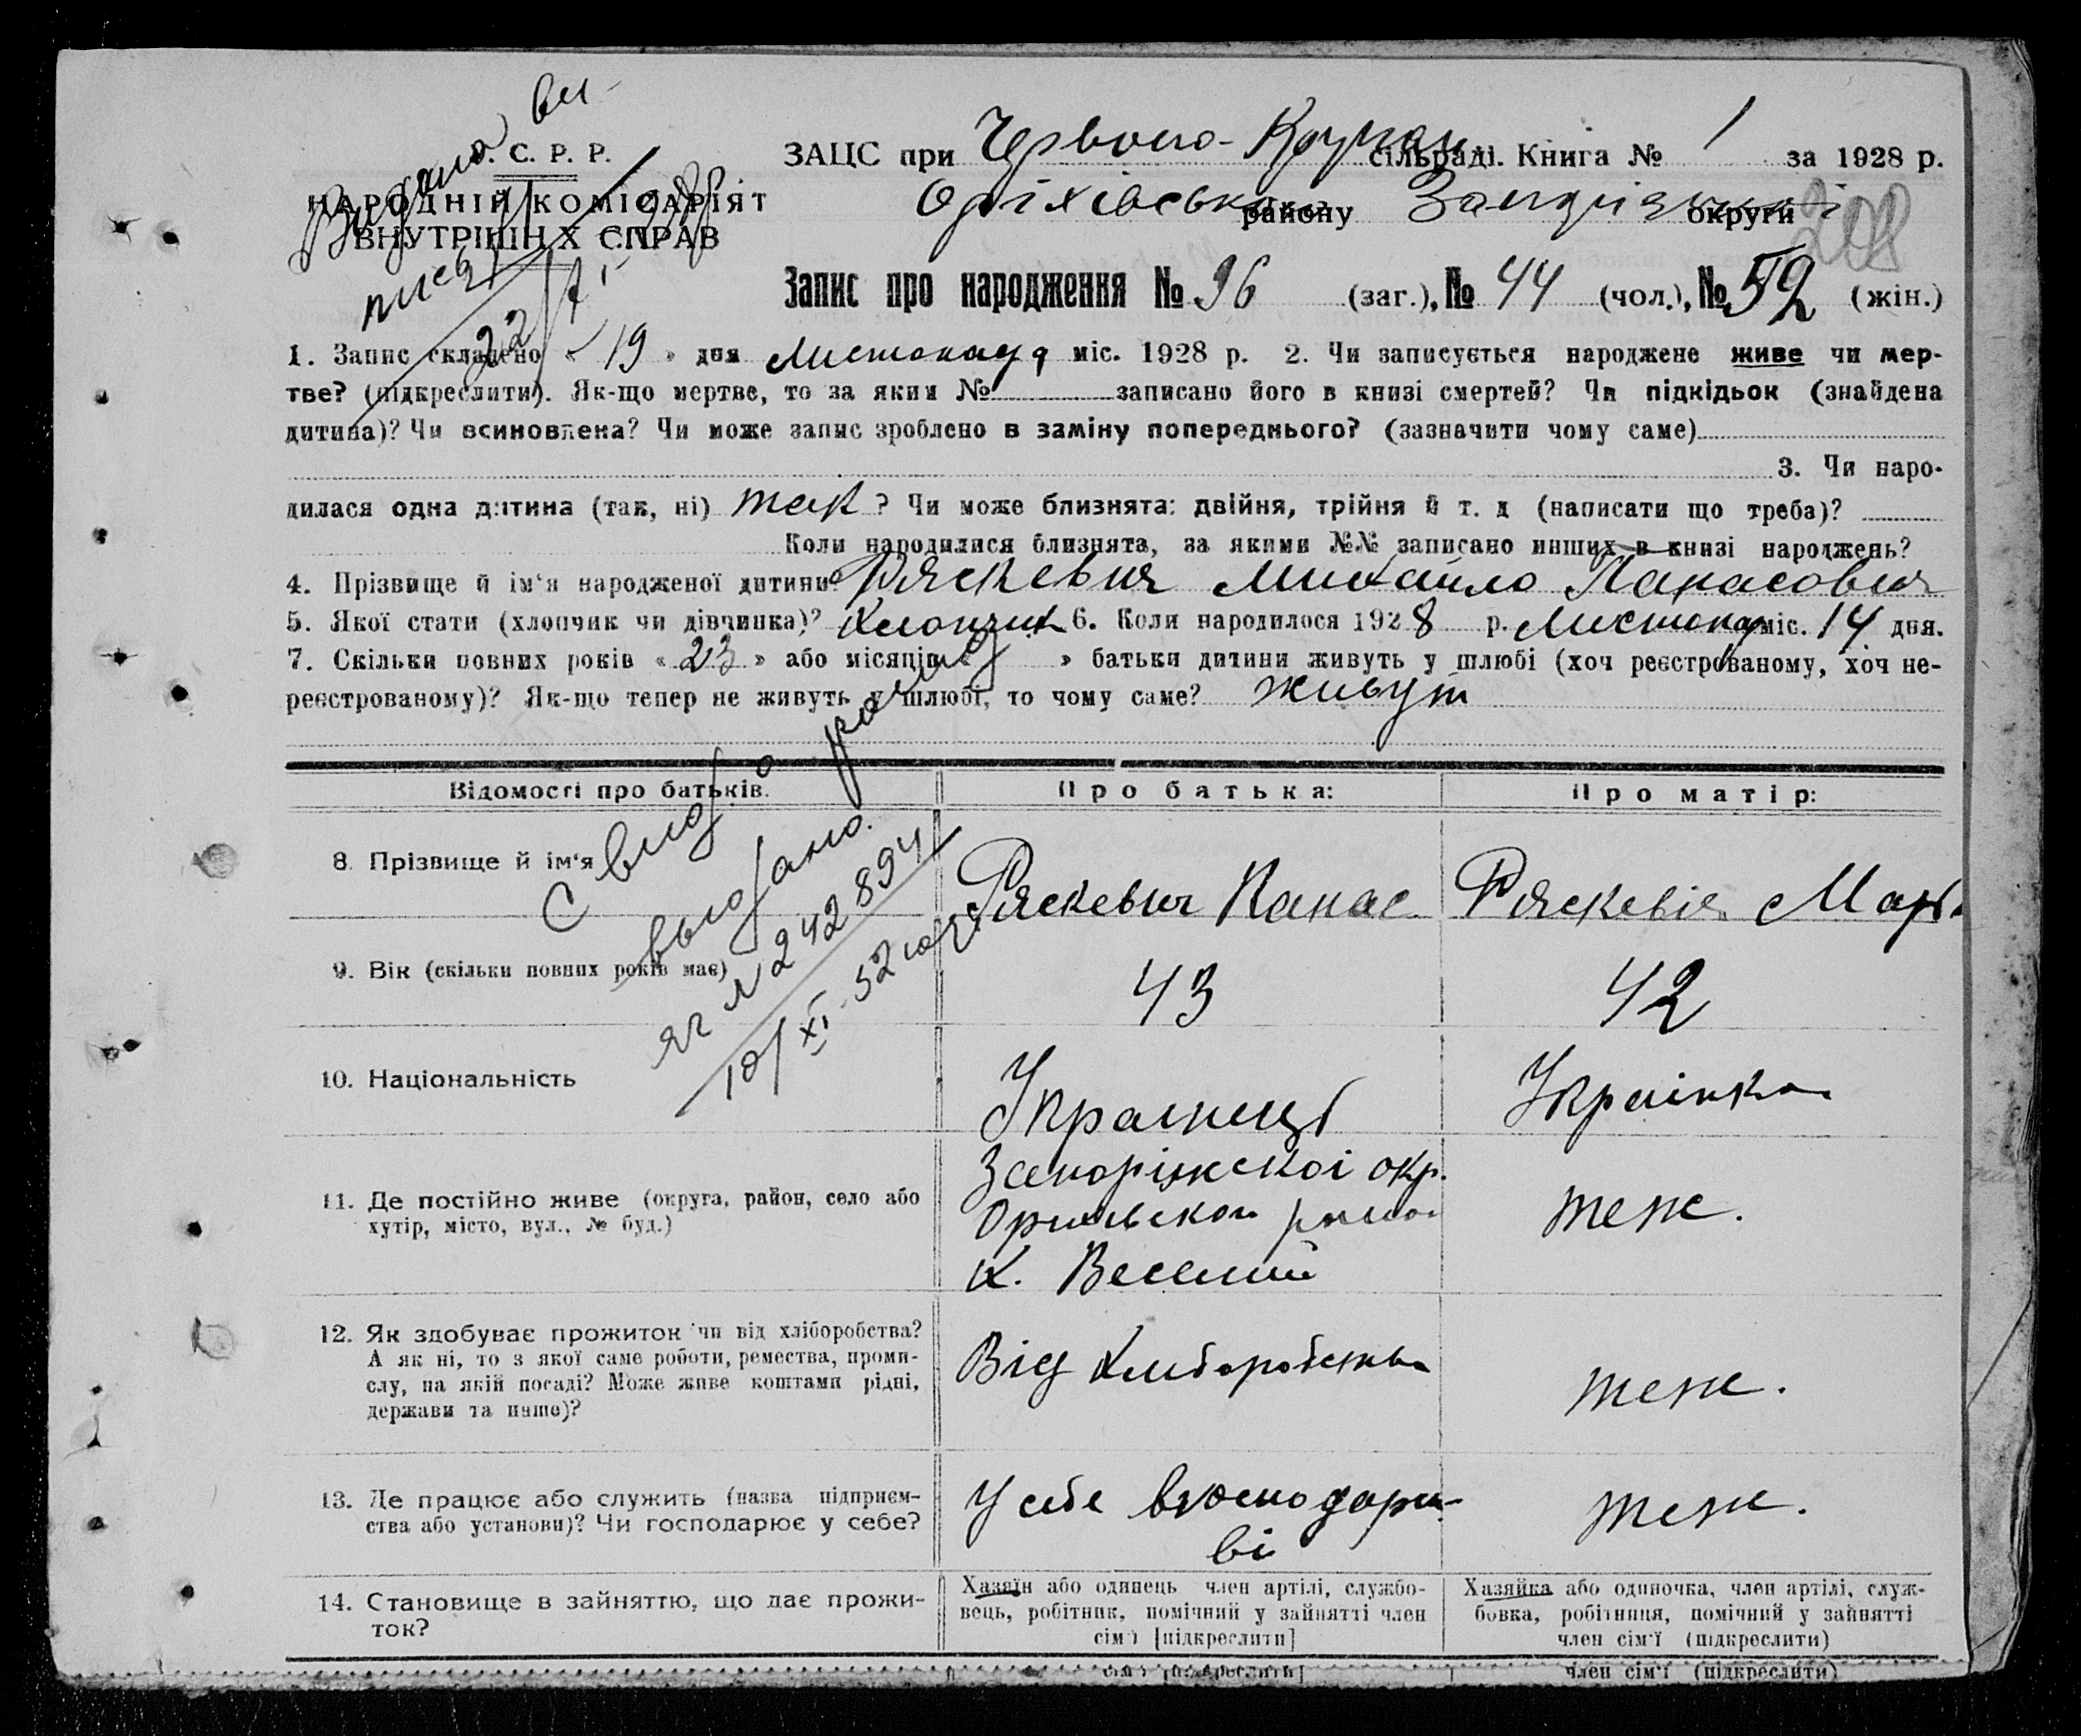 Видано ви-
пись
22/XI 1928
У. С. Р. Р.
НАРОДНІЙ КОМІСАРІЯТ
ВНУТРІШНІХ СПРАВ
ЗАЦС при Червоно- сільраді. Книга № 1 за 1928 р.
Оріхівського району Запорізької округи
208
Запис про народження № 96 (заг.), № 44 (чол.), № 52 (жін.)
1. Запис складено « 19 » дня Листопада міс. 1928 р. 2. Чи записується народжене живе чи мер-
тве? (підкреслити). Як-що мертве, то за яким № записано його в книзі смертей? Чи підкідьок (знайдена
дитина)? Чи всиновлена? Чи може запис зроблено в заміну попереднього? (зазначити чому саме)
3. Чи наро-
дилася одна дитина (так, ні) так ? Чи може близнята: двійня, трійня й т. д (написати що треба)?
Коли народилися близнята, за якими №№ записано инших в книзі народжень?
4. Прізвище й ім'я народженої дитини? Ряскевич Михайло Панасович
5. Якої стати (хлопчик чи дівчинка)? Хлопчик 6. Коли народилося 1928 р. Листопад міс. 14 дня.
7. Скільки повних років « 23 » або місяців « » батьки дитини живуть у шлюбі (хоч реєстрованому, хоч не-
реєстрованому)? Як-що тепер не живуть у шлюбі, то чому саме? живут
Відомості про батьків.
Про батька:
Про матір:
С-во о рожд
выдано.
ЯГ № 242894
10/XI-52
8. Прізвище й ім'я
Ряскевич Панас
Ряскевіч Марія
9. Вік (скільки повних років має)
43
42
10. Національність
Українець
Українка
11. Де постійно живе (округа, район, село або
хутір, місто, вул., № буд.)
Запоріжскої окр.
Оріхівского району
х. Веселий
теж.
12. Як здобуває прожиток чи від хліборобства?
А як ні, то з якої саме роботи, ремества, проми-
слу, на якій посаді? Може живе коштами рідні,
держави та инше)?
Від хліборобства
теж.
13. Де працює або служить (назва підприєм-
ства або установи)? Чи господарює у себе?
У себе в господарст-
ві
теж.
14. Становище в зайняттю, що дає прожи-
ток?
Хазяїн або одинець член артілі, службо-
вець, робітник, помічний у зайнятті член
сім'ї [підкреслити]
Хазяйка або одиночка, член артілі, служ-
бовка, робітниця, помічний у зайнятті
член сім'ї (підкреслити)
сім'ї [підкреслити]
член сім'ї (підкреслити)